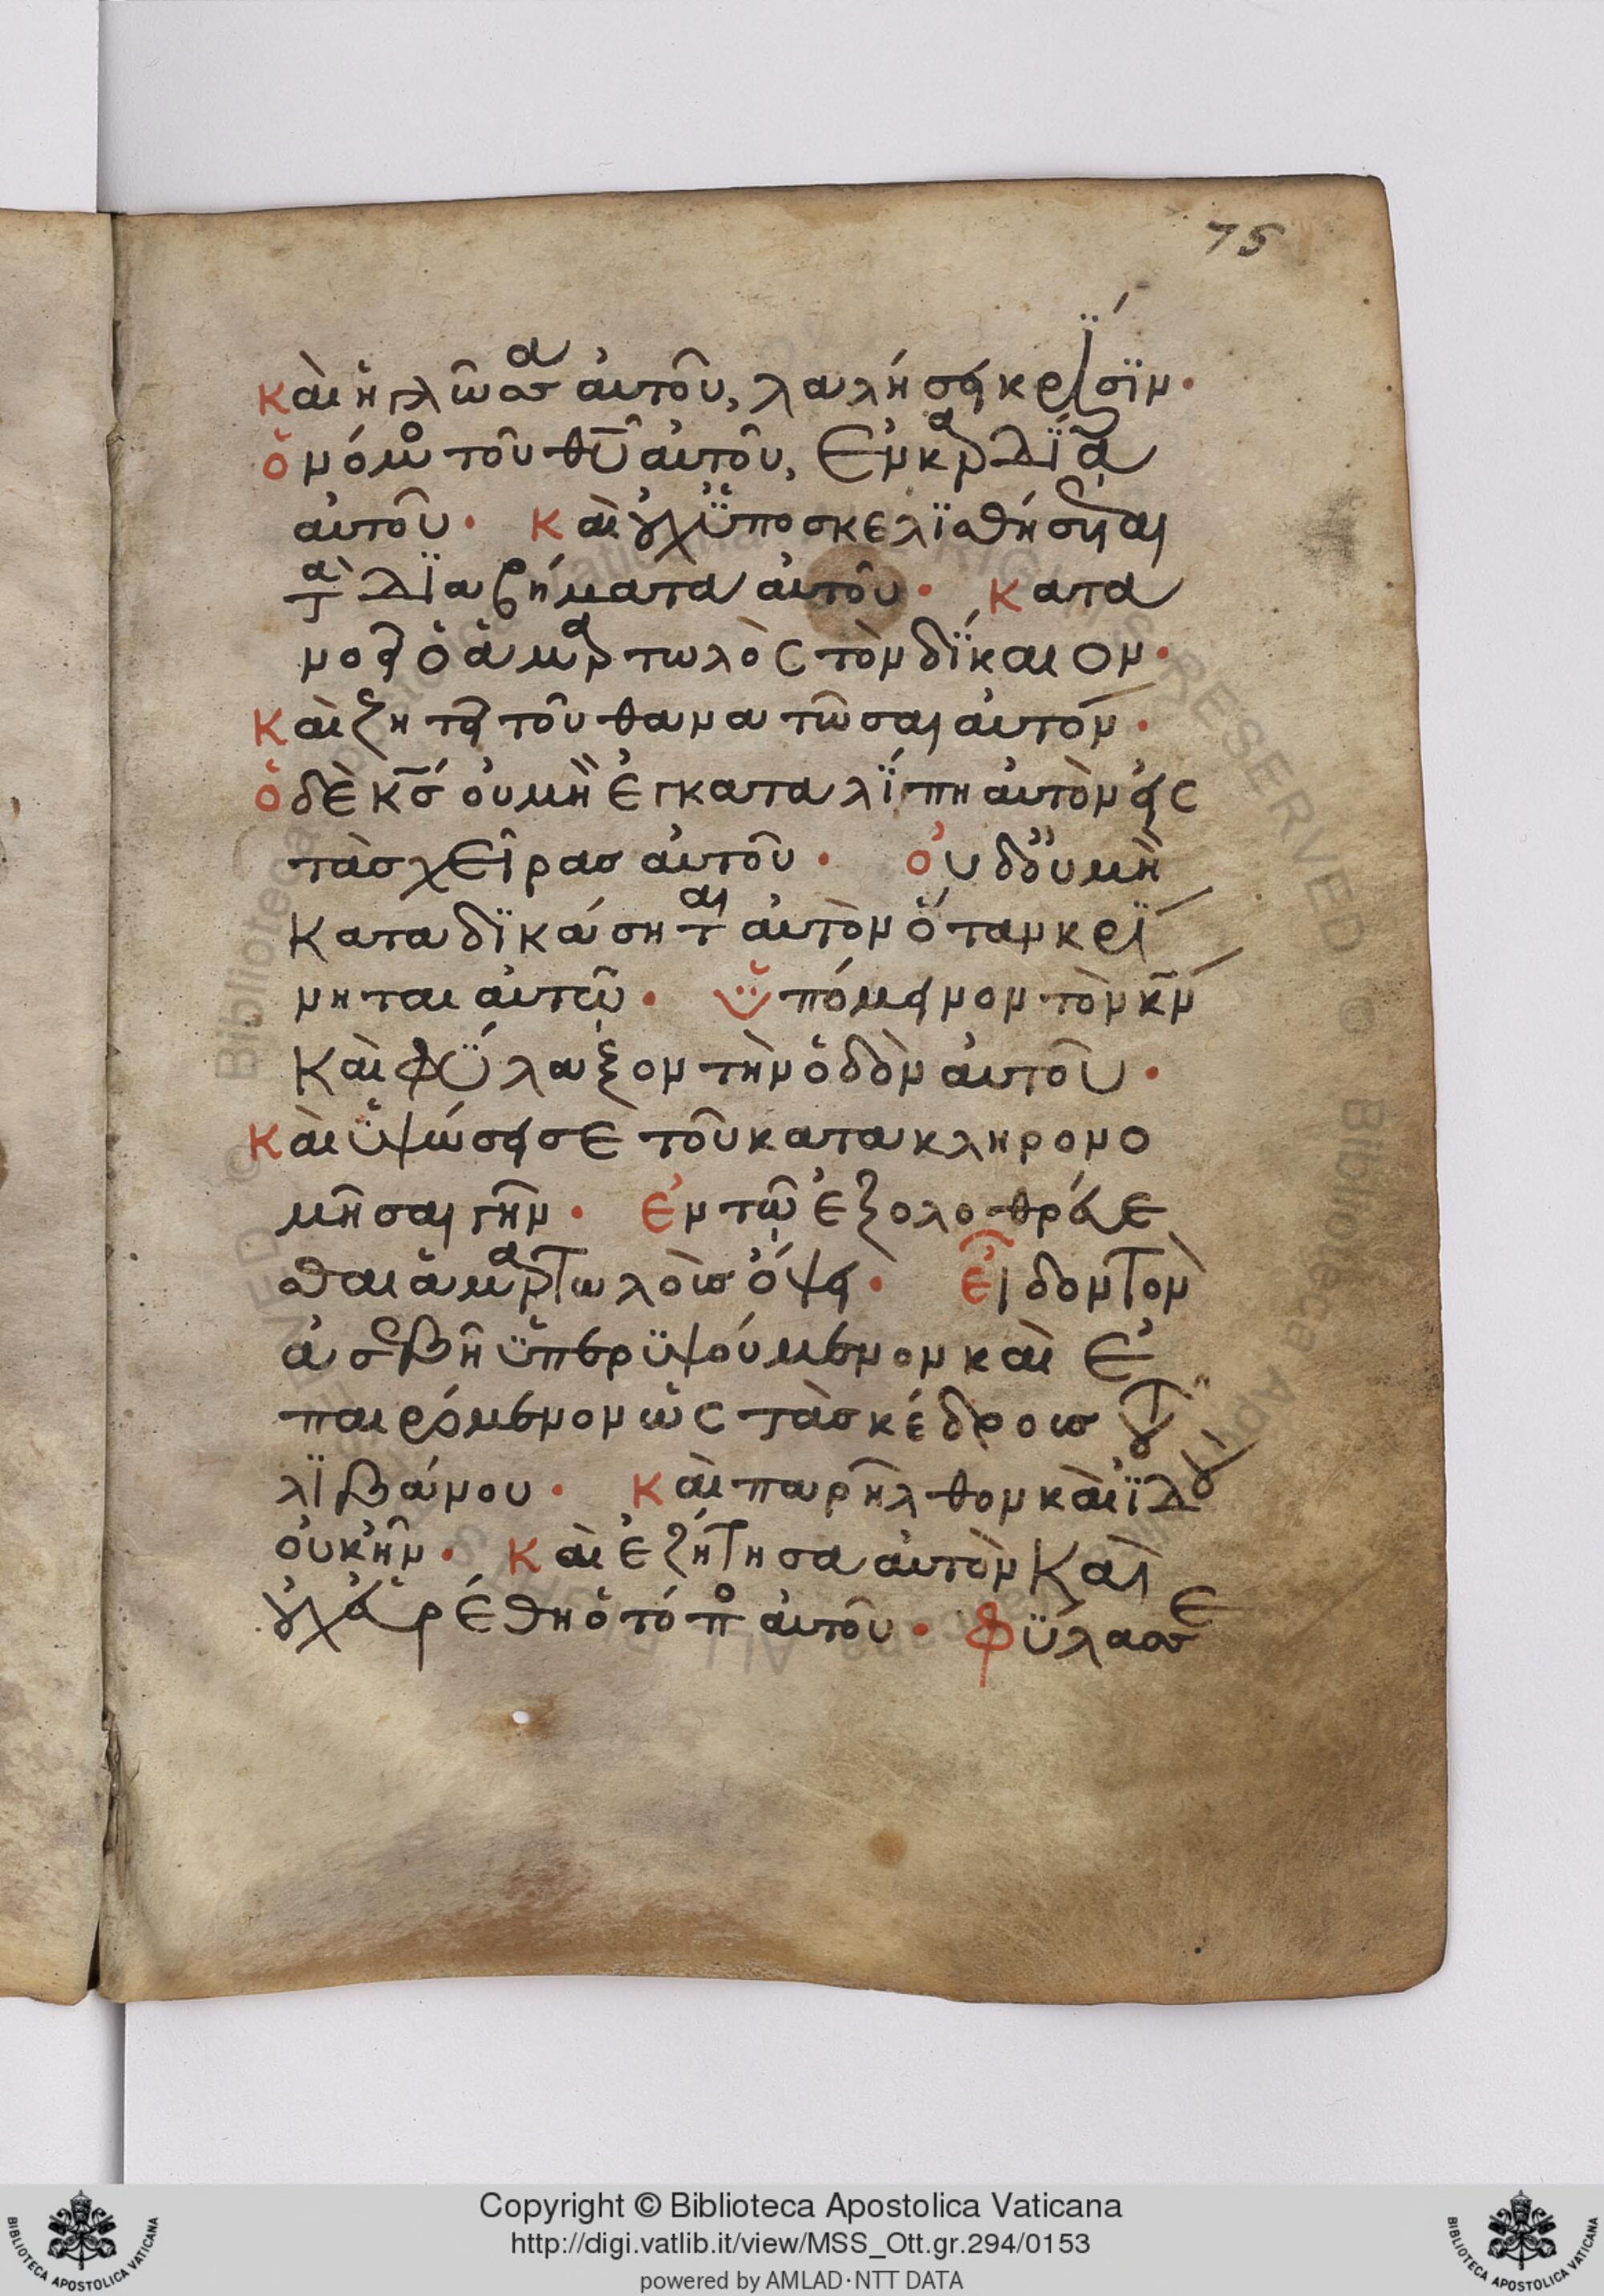 75
καὶ ἡ γλῶσσα αὐτοῦ, λαλήσει κρίσϊν·
ὁ νόμο τοῦ θ̅υ̅ αὐτοῦ, ἐν καρδΐᾳ
αὐτοῦ· Καὶ οὐχ ὑ̈ποσκελϊσθήσεται
τὰ δϊαβήματα αὐτοῦ· Κατα
νοεῖ ὁ ἁμαρτωλὸς τὸν δΐκαιον·
Καὶ ζητεῖ τοῦ θανατῶσαι αὐτόν·
ὁ δὲ κ̅σ̅ οὐ μὴ ἐγκαταλΐπη αὐτὸν εἰς
τὰσ χεῖρασ αὐτοῦ· οὐδ' οὐ μὴ
καταδϊκάσηται αὐτὸν ὅταν κρΐ
νηται αὐτῷ· ὑ̈πόμεινον τὸν κ̅ν̅
Καὶ φΰλαξον τὴν ὁδὸν αὐτοῦ·
Καὶ ὑ̈ψώσει σε τοῦ κατακληρονο
μῆσαι γῆν· ἐν τῷ ἐξολοθρεύε
σθαι ἁμαρτωλοὺσ ὄψει· εἶδον τὸν
ἀσεβῆ ὑ̈περϋψούμενον καὶ ἐ
παιρόμενον ὡς τὰσ κέδρουσ τοῦ
λϊβάνου· Καὶ παρῆλθον καὶ ἰ̈δοὺ
οὐκ ἦν· Καὶ ἐζήτησα αὐτὸν Καὶ
οὐχ εὑρέθη ὁ τόπο αὐτοῦ· Φΰλασσε
Copyright © Biblioteca Apostolica Vaticana
http://digi.vatlib.it/view/MSS_Ott.gr.294/0153
powered by AMLAD·NTT DATA